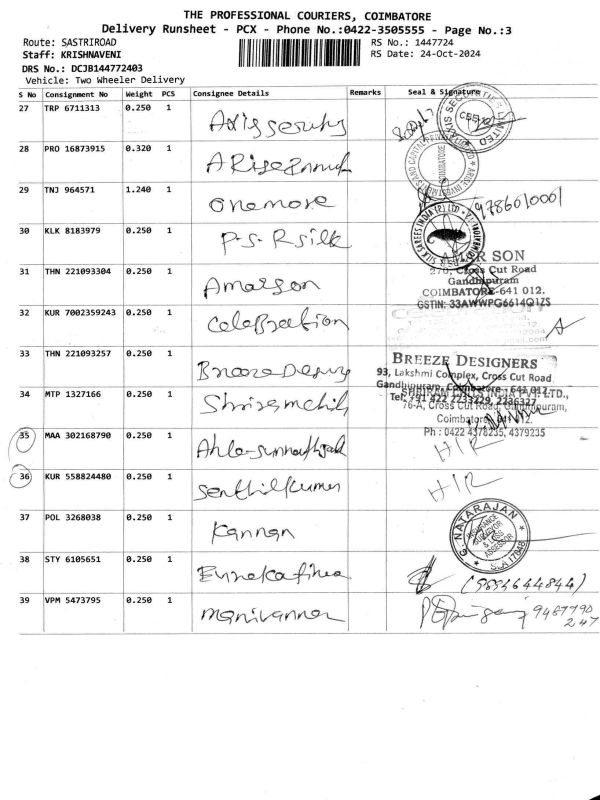 THE PROFESSIONAL COURIERS, COIMBATORE
Delivery Runsheet - PCX - Phone No.:0422-3505555 - Page No.:3
Route: SASTRIROAD
RS No.: 1447724
Staff: KRISHNAVENI
RS Date: 24-Oct-2024
DRS No.: DCJB144772403
Vehicle: Two Wheeler Delivery
S No Consignment No Weight PCS Consignee Details Remarks Seal & Signature
27 TRP 6711313 0.250 1
28 PRO 16873915 0.320 1
29 TNJ 964571 1.240 1 onemore 9786010001
30 KLK 8183979 0.250 1 P.S.R silk
31 THN 221093304 0.250 1
SON
270, Cross Cut Road
Gandhipuram
COIMBATORE-641 012.
GSTIN: 33AWWPG6614Q1ZS
32 KUR 7002359243 0.250 1 Celebration
33 THN 221093257 0.250 1
BREEZE DESIGNERS
93, Lakshmi Complex, Cross Cut Road
Gandhipuram, Coimbatore - 641 012.
Tel: +91 422 2233229, 2236327
34 MTP 1327166 0.250 1
76-A, Cross Cut Road, Gandhipuram,
Coimbatore - 641 012.
Ph : 0422 4378235, 4379235
35 MAA 302168790 0.250 1 HIR
36 KUR 558824480 0.250 1 Senthilkumar HIR
37 POL 3268038 0.250 1 Kannan
C. NATARAJAN
INSURANCE SURVEYOR & LOSS ASSESSOR
38 STY 6105651 0.250 1 (9894644844)
39 VPM 5473795 0.250 1 manivannan 9487790
247